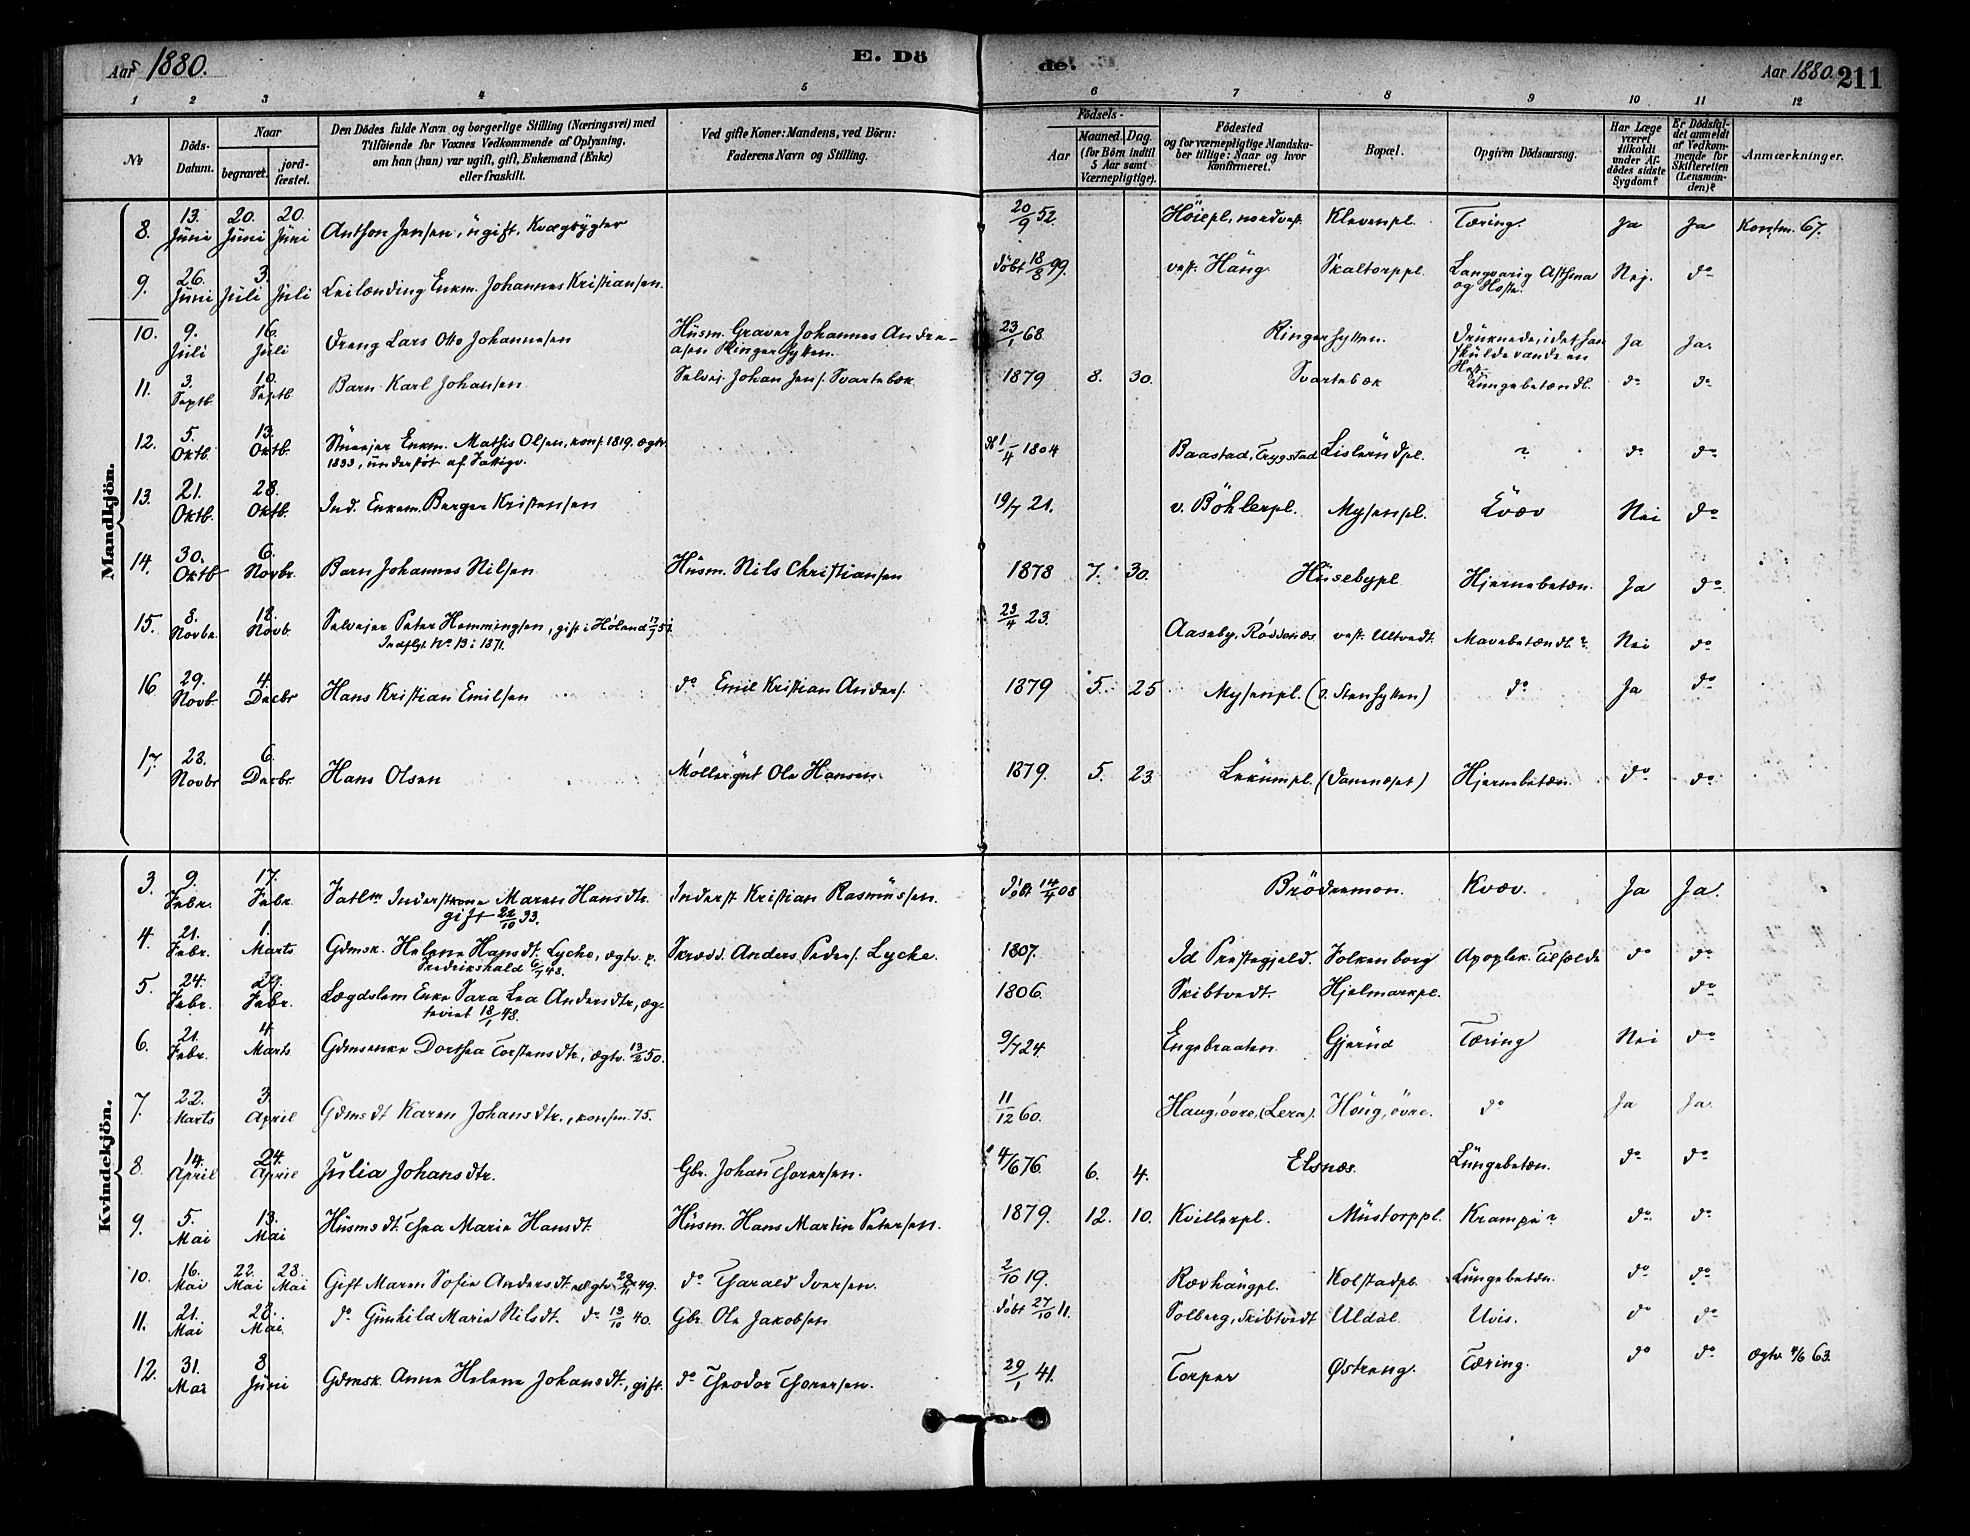 Aar 1880.
E. Dö
de.
Aar 1880. 211
1 2 3 4 5 6 7 8 9 10 11 12
No
Döds-
Datum.
Naar
begravet.
jord-
fæstet.
Den Dödes fulde Navn og borgerlige Stilling (Næringsvei) med
Tilföiende for Voxnes Vedkommende af Oplysning,
om han (hun) var ugift, gift, Enkemand (Enke)
eller fraskilt.
Ved gifte Koner: Mandens, ved Börn:
Faderens Navn og Stilling.
Födsels-
Aar
Maaned. Dag.
(for Börn indtil
5 Aar samt
Værnepligtige).
Födested
og for værnepligtige Mandska-
ber tillige: Naar og hvor
konfirmeret.
Bopæl.
Opgiven Dödsaarsag.
Har Læge
været
tilkaldt
under Af-
dödes sidste
Sygdom?
Er Dödsfal-
det anmeldt
af Vedkom-
mende for
Skifteretten
(Lensman-
den)?
Anmærkninger.
Mandkjön.
8. 13. Juni 20. Juni 20. Juni Anthon Jensen, ugift, Kvægrygter 20/9 52. Höiepl, nordvest. Klevenpl. Tæring. Ja Ja Konfm. 67.
9. 26. Juni 3. Juli Juli Leilænding Enkm. Johannes Kristiansen. döbt 18/8 99. vest. Haug Skaltorppl. Langvarig Asthma
og Hoste. Nej. do
10. 9. Juli 16. Juli Dreng Lars Otto Johannesen Husm. Graver Johannes Andre-
asen Ringerhytten. 23/1 68 Ringerhytten. Druknede, idet han
skulde vande en
Hest. Ja Ja.
11. 3. Septb. 10. Septb Barn Karl Johansen Selvej. Johan Jens. Svartebæk 1879 8. 30. Svartebæk Lungebetændl. do do
12. 5. Oktb. 13. Oktb Enkm. Mathis Olsen, konf. 1819. ægtv.
1833, understöt. af Fattigv. 1/4 1804 Baastad, Trygstad Lislerudpl. ? do do
13. 21. Oktb. 28. Oktb. Ind. Enkem. Berger Kristensen 19/7 21. v. Böhlerpl. Mysenpl. Kvæv Nei do
14. 30. Oktb 6. Novbr. Barn Johannes Nilsen Husm. Nils Christiansen 1878 7. 30. Husebypl Hjernebetæn. Ja do
15. 8. Novbr. 18. Novb. Selvejer Peter Hemmingsen, gift i Höland
Indflyt. No 13 i 1871. 23/4 23. Aaseby, Rödenæs vest. Ultvedt. Mavebetændl? Nei do
16 29. Novb. 4. Decbr Hans Kristian Emilsen do Emil Kristian Anders. 1879 5. 25 Mysenpl. (v. Stenhytten) do Ja do
17. 23. Novbr 6. Decbr. Hans Olsen Möllergut Ole Hansen 1879. 5. 23 Lekumpl. Hjernebetæn. do do
Kvindekjön.
3. 9. Febr. 17. Febr. Fatlm Inderstkone Maren Hansdtr.
gift 22/10 33. Inderst Kristian Rasmussen. Döbt 14/4 08 Brödremon. Kvæv. Ja Ja.
4. 21. Febr. 1. Marts Gdmsk. Helene Hansdt. Lyche, ægtv. p.
Fredrikshald 6/1 48. Skredd. Anders Peders. Lyche. 1807. Id Prestegjeld. Folkenborg Apoplek. Tilfælde do do
5. 24. Febr. 29. Febr. Lægdslem Enke Sara Lea Andersdtr, æg-
teviet 18/1 48. 1806. Skibtvedt. Hjelmarkpl. do
6. 21. Febr. 4. Marts Gdmsenke Dorthea Torstensdtr, ægtv. 13/2 50. 9/7 24. Engebraaten Gjerud Tæring Nei do
7. 22. Marts 3. April Gdmsdt Karen Johansdtr., konfm. 75. 11/12 60. Haug, övre, (Lera). Haug, övre. do Ja Ja.
8. 14. April 24. April Julia Johansdtr. Gbr. Johan Thoresen. 4/6 76. 6. 4. Elsnæs. Lungebetæn. do do
9. 5. Mai 13. Mai Husmsdt. Thea Marie Hansdt. Husm. Hans Martin Petersen. 1879. 12. 10. Kvillerpl. Mustorppl. Krampe? do do
10. 16. Mai 22. Mai 28. Mai Gift Maren Sofie Andersdt. ægtv. 29/11 49. do Tharald Iversen. 2/10 19. Rævhaugpl. Kolstadpl. Lungebetæn. do do
11. 21. Mai 28. Mai. do Gunhild Marie Nilsdt. do 13/10 40. Gbr. Ole Jakobsen döbt 27/10 11. Solberg, Skibtvedt Uldal Uvis. do do
12. 31. Mai 8 Juni Gdmsk. Anne Helene Johansdt., gift. do Theodor Thoresen. 29/1 41. Torper Østreng. Tæring. do do Ægtv. 4/6 63.